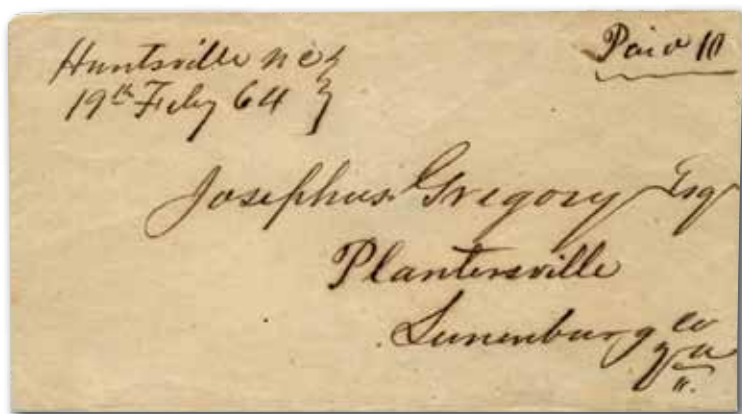 Huntsville N C
19th Feby 64
Paid 10
Josephus Gregory Esq
Plantersville
Lunenburg Co
Va